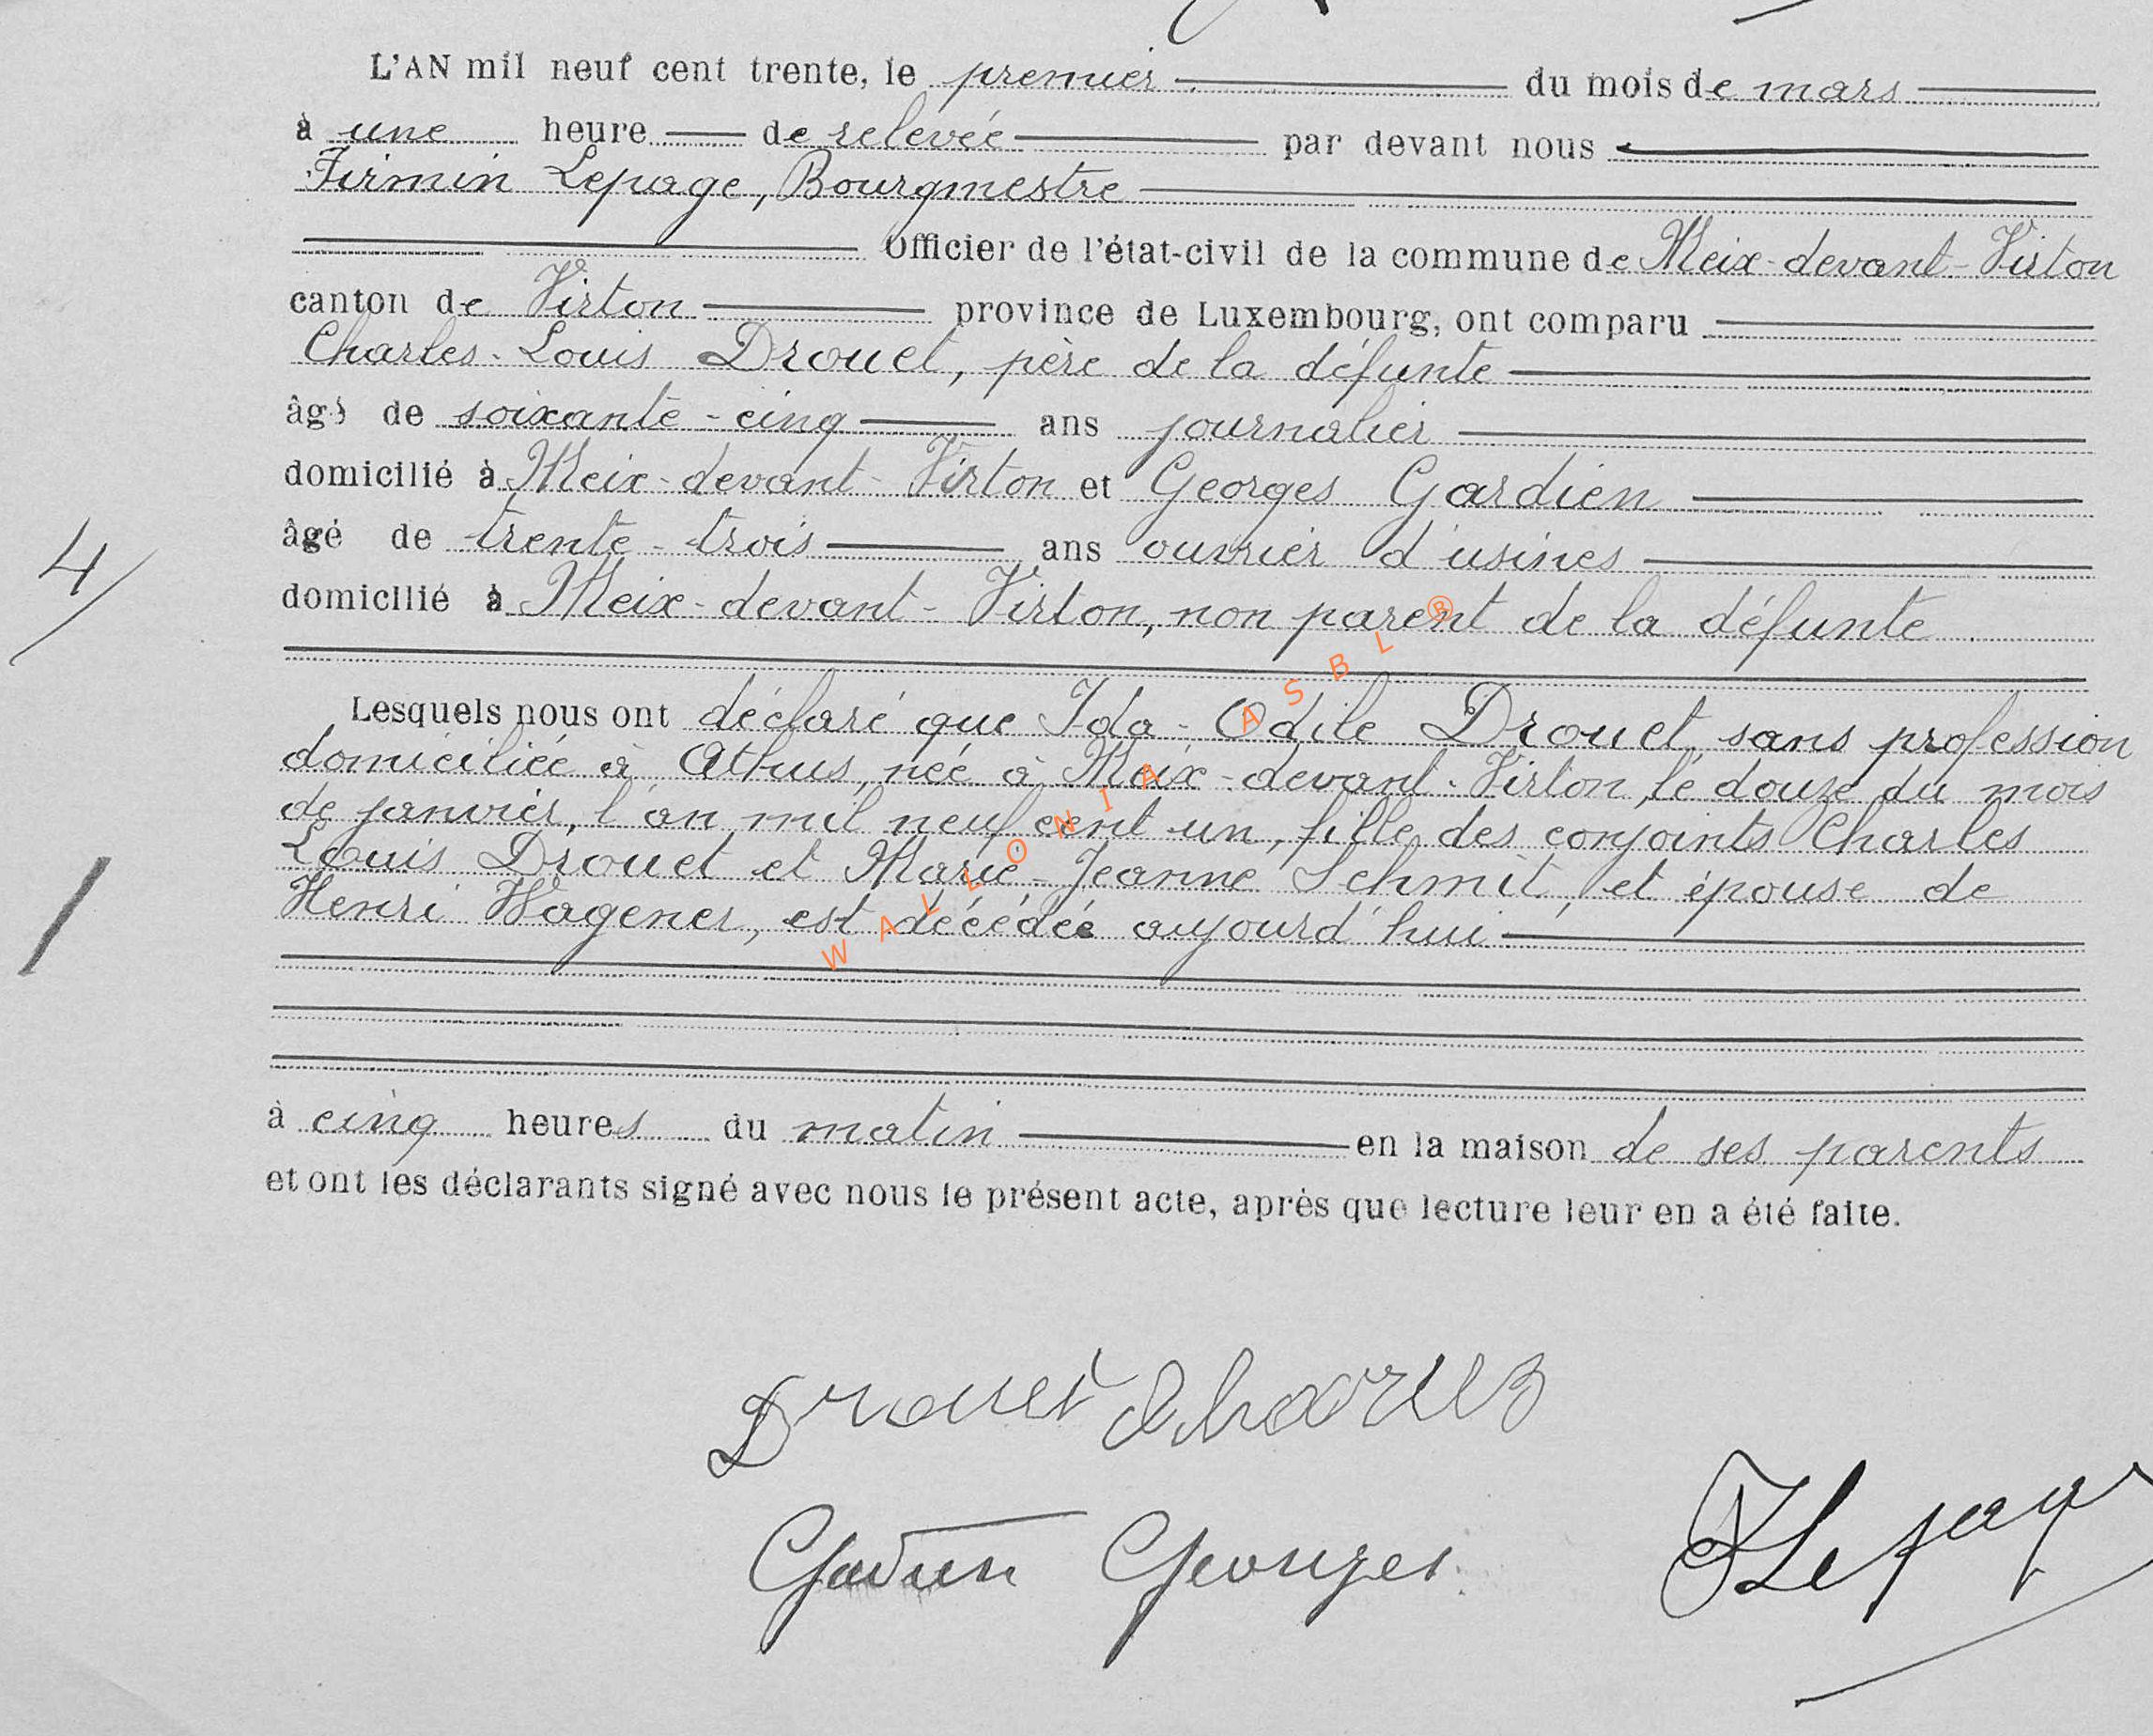 L'AN mil neuf cent trente, le premier du mois de mars
à une heure de relevée par devant nous
Firmin Lepage, Bourgmestre
Officier de l'état-civil de la commune de Meix-devant-Virton
canton de Virton province de Luxembourg, ont comparu
Charles-Louis Drouet, père de la défunte
âgé de soixante-cinq ans journalier
domicilié à Meix-devant-Virton et Georges Gardien
âgé de trente-trois ans ouvrier d'usines
4/
domicilié à Meix-devant-Virton, non parent de la défunte
Lesquels nous ont déclaré que Ida-Odile Drouet, sans profession
domiciliée à Athus, née à Meix-devant-Virton, le douze du mois
de janvier, l'an mil neuf cent un, fille des conjoints Charles
Louis Drouet et Marie-Jeanne Schmit, et épouse de
/
Henri Wagener, est décédée aujourd'hui
à cinq heures du matin en la maison de ses parents
et ont les déclarants signé avec nous le présent acte, après que lecture leur en a été faite.
Drouet Charles
Gardien Georges
FLepage
WALLONIA ASBL ®